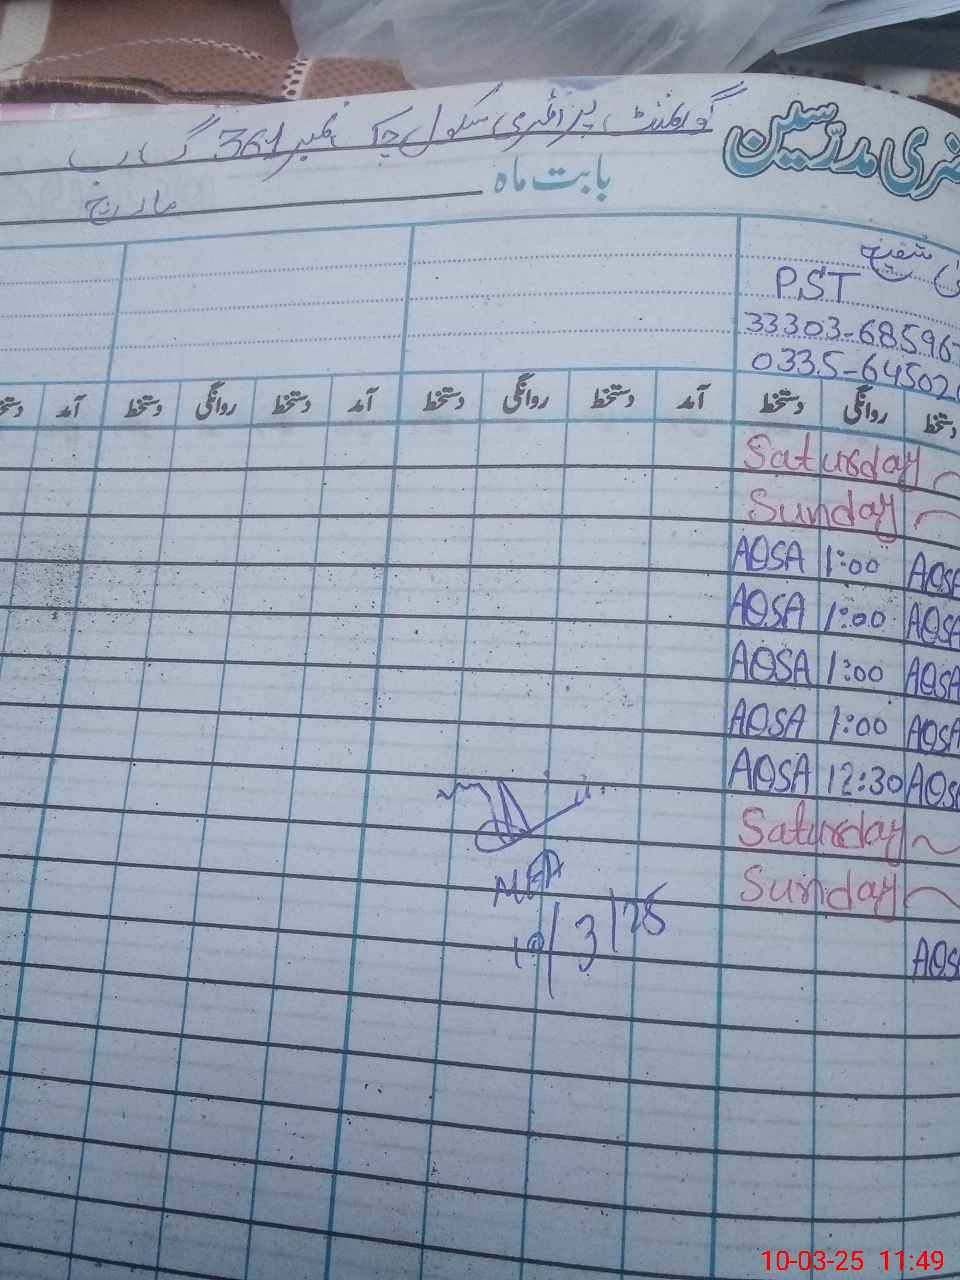 حاضری مدرسین گورنمنٹ پرائمری سکول چک نمبر 361 گ ب
بابت ماہ مارچ
شفیع
PST
33303-68596
0335-64502
دستخط روانگی دستخط آمد دستخط روانگی دستخط آمد دستخط روانگی دستخط آمد دستخط
Saturday
Sunday
AQSA 1:00 AQSA
AQSA 1:00 AQSA
AQSA 1:00 AQSA
AQSA 1:00 AQSA
AQSA 12:30 AQSA
Saturday
Sunday
MEA
10/3/25
AQSA
10-03-25 11:49